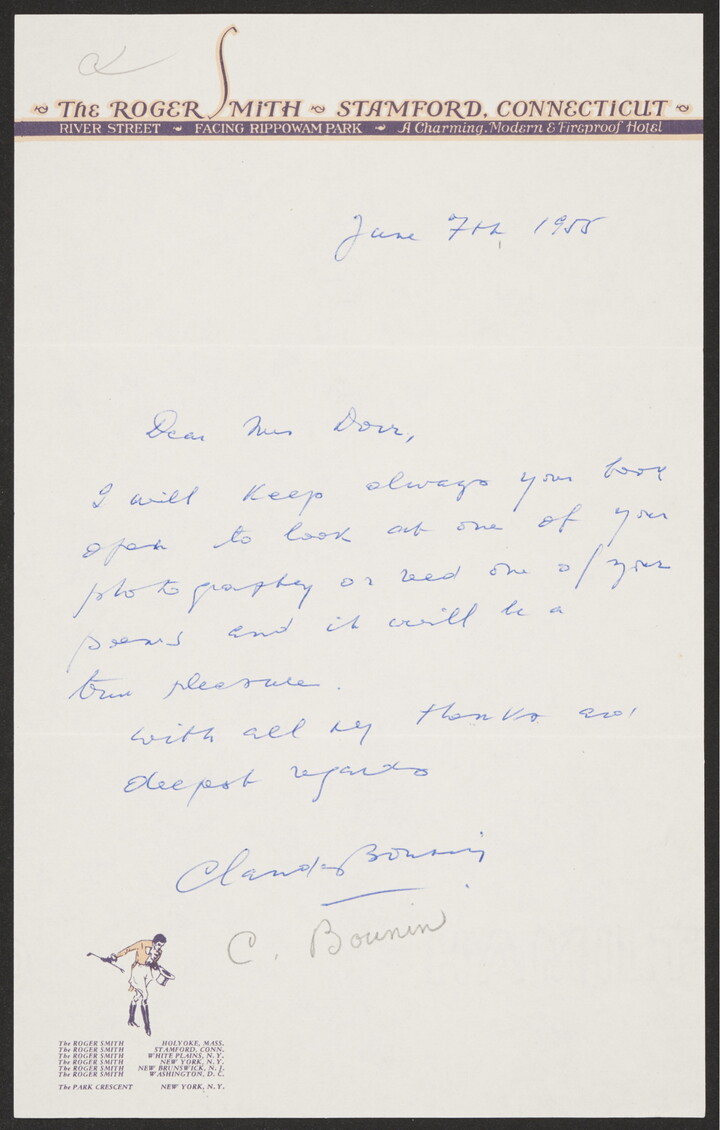 The ROGER SMITH ~ STAMFORD, CONNECTICUT
RIVER STREET ~ FACING RIPPOWAM PARK ~ A Charming, Modern & Fireproof Hotel
June 7th, 1955
Dear Mrs Dorr,
I will keep always your book
open to look at one of your
photography or read one of your
poems and it will be a
true pleasure.
with all my thanks and
deepest regards
Claude Bounin
C. Bounin
The ROGER SMITH HOLYOKE, MASS.
The ROGER SMITH STAMFORD, CONN.
The ROGER SMITH WHITE PLAINS, N.Y.
The ROGER SMITH NEW YORK, N.Y.
The ROGER SMITH NEW BRUNSWICK, N.J.
The ROGER SMITH WASHINGTON, D.C.
The PARK CRESCENT NEW YORK, N.Y.